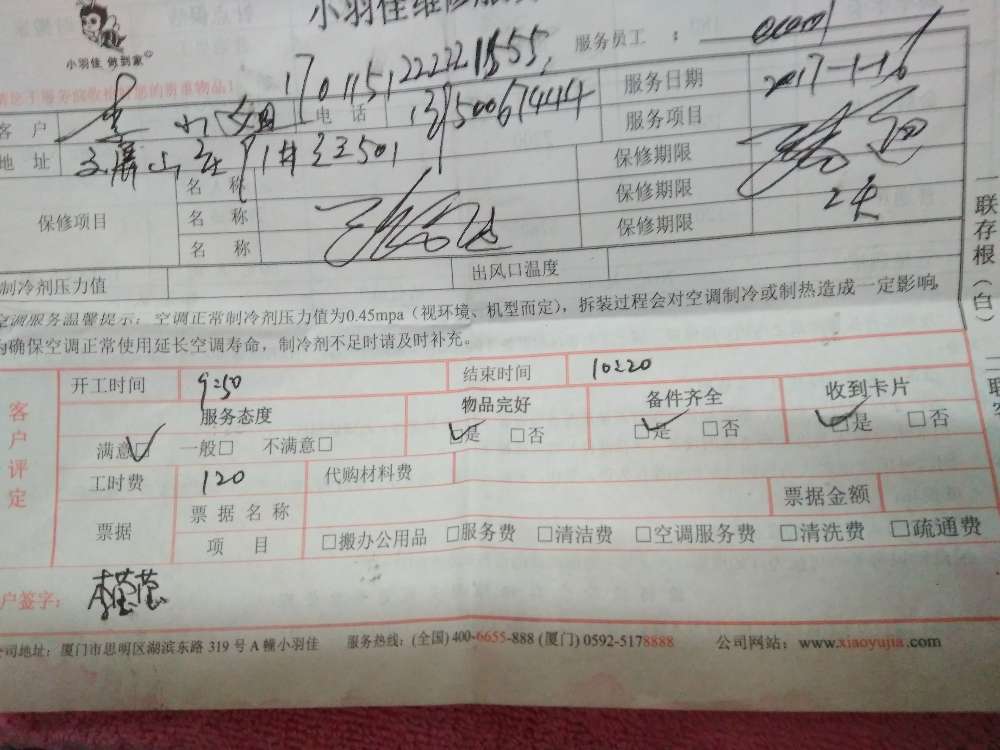 小羽佳维修服务
小羽佳 做到家
服务员工：
1701151222221555
客户 李小姐 电话 13950067444 服务日期 2017-1-16
地址 501 服务项目 疏通
名称 保修期限
保修项目 名称 疏通 保修期限
名称 保修期限 2天
制冷剂压力值 出风口温度
空调服务温馨提示：空调正常制冷剂压力值为0.45mpa（视环境、机型而定），拆装过程会对空调制冷或制热造成一定影响，
为确保空调正常使用延长空调寿命，制冷剂不足时请及时补充。
一联存根（白）
客户评定
开工时间 9:50 结束时间 10:20
服务态度 物品完好 备件齐全 收到卡片
满意☑ 一般□ 不满意□ ☑是 □否 ☑是 □否 ☑是 □否
工时费 120 代购材料费
票据 票据名称 票据金额
项目 □搬办公用品 □服务费 □清洁费 □空调服务费 □清洗费 □疏通费
户签字：
公司地址：厦门市思明区湖滨东路 319 号 A 幢小羽佳 服务热线：(全国) 400-6655-888 (厦门) 0592-5178888 公司网站：www.xiaoyujia.com